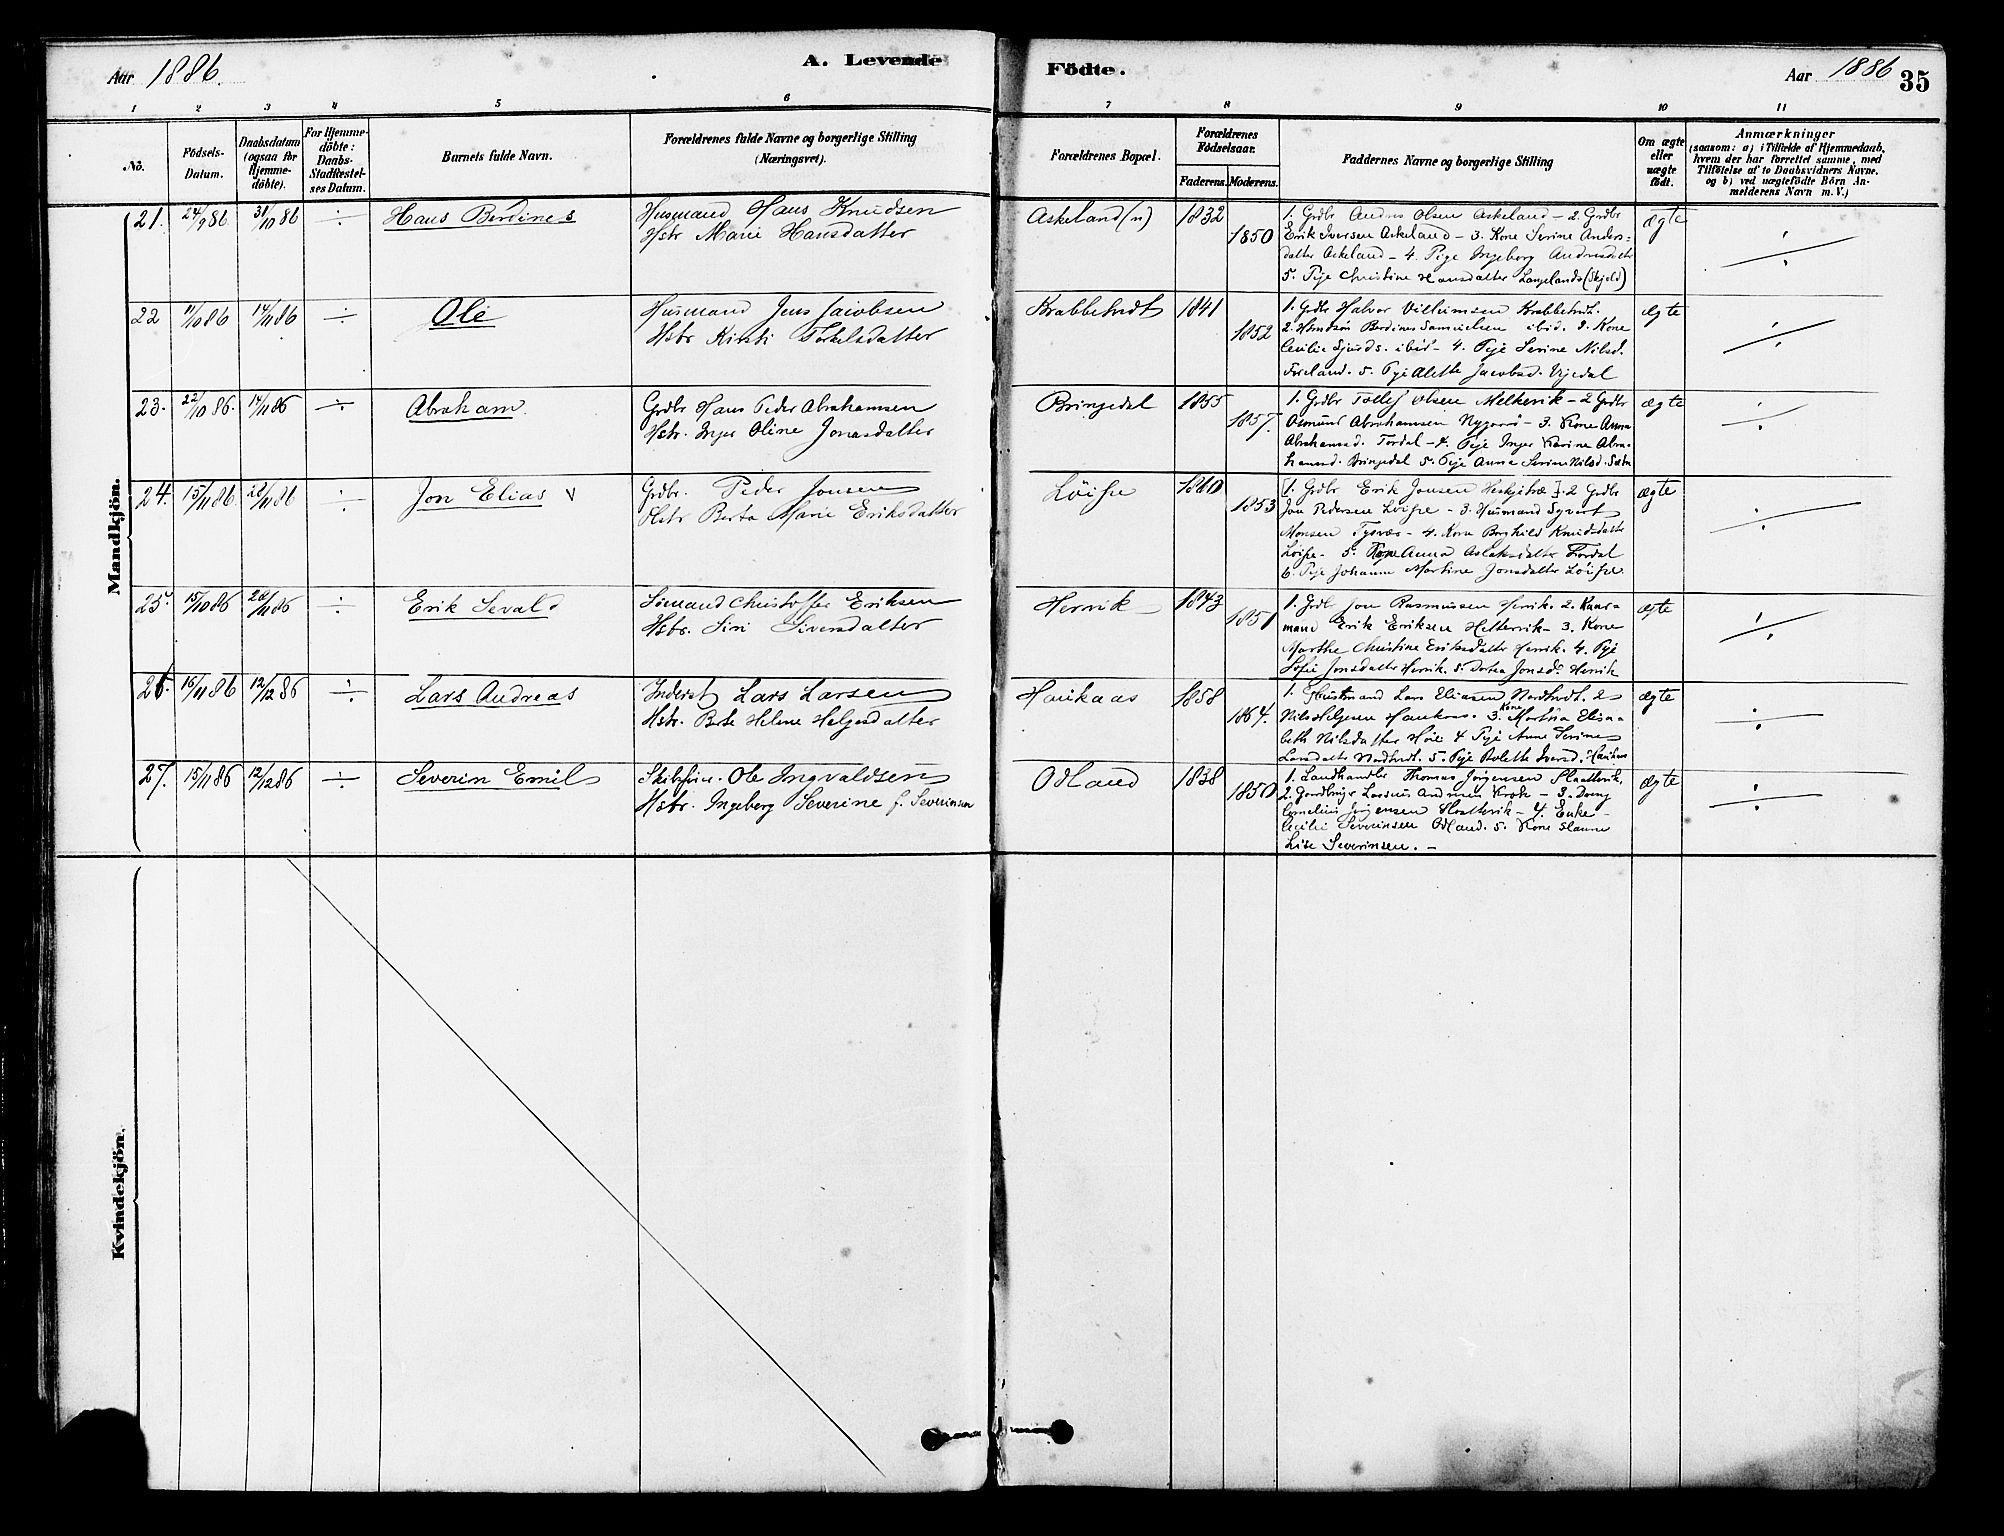 Aar 1886.
A. Levende Födte.
Aar 1886
35
1 2 3 4 5 6 7 8 9 10 11
No.
Födsels-Datum.
Daabsdatum (ogsaa for Hjemme-döbte).
For Hjemme-döbte: Daabs-Stadfæstel-ses Datum.
Barnets fulde Navn.
Forældrenes fulde Navne og borgerlige Stilling (Næringsvei).
Forældrenes Bopæl.
Forældrenes Födselsaar.
Faderens. Moderens.
Faddernes Navne og borgerlige Stilling
Om ægte eller uægte födt.
Anmærkninger
(saasom: a) i Tilfælde af Hjemmedaab,
hvem der har forrettet samme, med
Tilföielse af to Daabsvidners Navne.
og b) ved uægtefödte Börn An-
melderens Navn m. V.)
Mandkjön.
21. 24/9 86 31/10 86 ÷ Hans Berdines
Husmand Hans Knudsen
Hstr Marie Hansdatter
Askeland (n) 1832 1850
1. Grdbr Andres Olsen Askeland – 2. Grdbr
Erik Iversen Askeland – 3. Kone Serine Anders-
datter Askeland – 4. Pige Ingeborg Andreasdatr
5. Pige Christine Hansdatter Langelands (Skjold)
ægte ÷
22 11/10 86 14/11 86 ÷ Ole
Husmand Jens Jacobsen
Hstr Kirsti Torkelsdatter
Krabbetvedt 1841 1852
1. Grdbr Halvor Vilhemsen Krabbetvedt.
2. Berdines Samuelsen ibid. 3. Kone
Cecilie Sjurds. ibid – 4. Pige Serine Nilsd.
Foreland. 5. Pige Alette Jacobsd.
ægte ÷
23. 22/10 86. 14/11 86 ÷ Abraham.
Grdbr Hans Peder Abrahamsen
Hstr. Inger Oline Jonasdatter
Bringedal 1855 1857.
1. Grdbr Tollef Olsen Melkevik – 2 Grdbr
Osmund Abrahamsen – 3. Kone Anna
Abrahamsd. Førdal – 4. Pige Inger Karine Abra-
hamsd. Bringedal 5. Pige Anna Serine Nilsd.
ægte ÷
24. 15/11 86 28/11 86 ÷ Jon Elias v
Grdbr. Peder Jonsen
Hstr Berta Marie Eriksdatter
Löifse 1853
[1. Grdbr Erik Jonsen]. 2 Grdbr
Jon Pedersen Löifse – 3. Husmand Syvert
Monsen Tysvær – 4. Kone Borghild Knudsdatter
Löifse – 5. Kone Anna Aslaksdatter Førdal
6. Pige Johanne Martine Jonsdatter Löifse
ægte ÷
25. 15/10 86 28/11 86 ÷ Erik Sevald
Sömand Christoffer Eriksen
Hstr. Siri Siversdatter
Hervik 1843 1851
1. Grdbr Jon Rasmussen Hervik. 2. Kaar-
mand Erik Eriksen Hettervik – 3. Kone
Marthe Christine Eriksdatter Hervik. 4. Pige
Sofie Jonsdatter Hervik. 5. Dortea Jonsd. Hervik
ægte ÷
26. 16/11 86 12/12 86 ÷ Lars Andreas
Inderst Lars Larsen
Hstr. Berte Helene Helgesdatter
Haukaas 1858 1864.
1. Husmand Lars Eliasen Nordtvedt. 2
Nils Helgesen Haukaas. 3. Kone Martha Elisa-
beth Nilsdatter Høie 4 Pige Anne Serine
Larsdatr Nordtvedt. 5. Pige Bolette Iversd. Haukaas
ægte ÷
27. 15/11 86 12/12 86 ÷ Severin Emil
Skibsfører. Ole Ingvaldsen
Hstr. Ingeborg Severine f. Severinsen
Odland 1838 1850
1. Landhandler Thomas Jörgensen Slaattevik.
2. Gaardbruger Rasmus Andersen Krok – 3. Dreng
Cornelius Jörgensen Slaattevik – 4. Enke
Cecilie Severinsen Odland. 5. Kone
Lise Severinsen. –
ægte ÷
Kvindekjön.